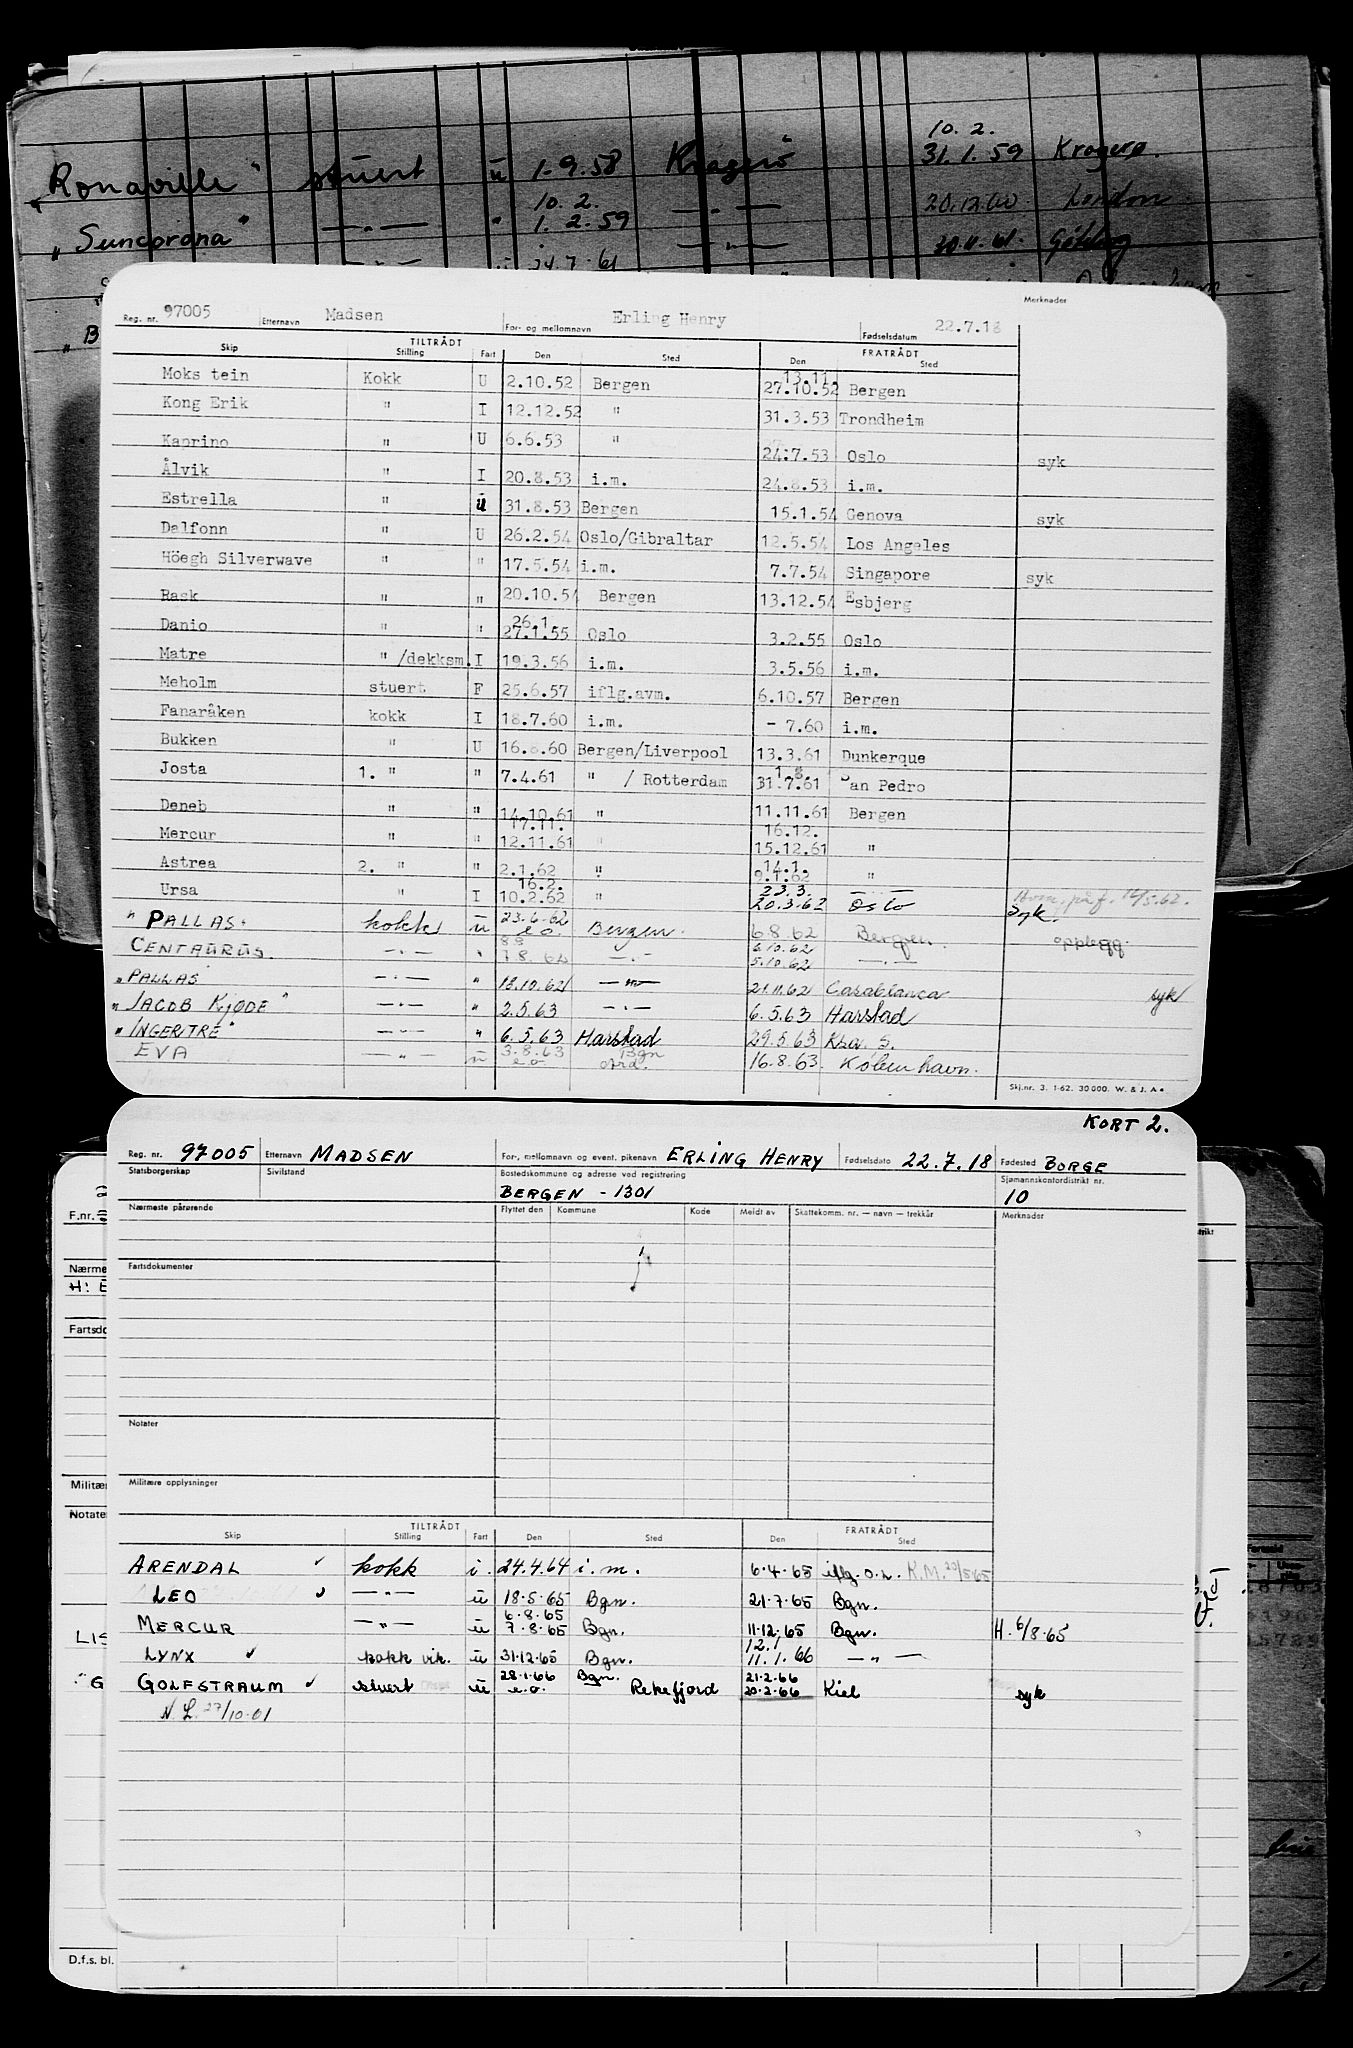 10. 2.
"Ronaville" stuert ü 1-9.58 Kragerö 31.1.59 Kragerø.
10. 2.
"Suncorona" —"— " 1. 2.59 —"— 20.12.60 London
—"— ü 24.7.61 —"— 30.11.61. Gøteborg
"B
Merknader
Reg. nr. 97005 Etternavn Madsen For- og mellomnavn Erling Henry Fødselsdatum 22.7.18
TILTRÅDT FRATRÅDT
Skip Stilling Fart Den Sted Den Sted
13.11.
Moks tein Kokk U 2.10.52 Bergen 27.10.52 Bergen
Kong Erik " I 12.12.52 " 31.3.53 Trondheim
Kaprino " U 6.6.53 " 24.7.53 Oslo syk
Ålvik " I 20.8.53 i.m. 24.8.53 i.m.
Estrella " ü 31.8.53 Bergen 15.1.54 Genova syk
Dalfonn " U 26.2.54 Oslo/Gibraltar 12.5.54 Los Angeles
Höegh Silverwave " " 17.5.54 i.m. 7.7.54 Singapore syk
Rask " " 20.10.54 Bergen 13.12.54 Esbjerg
26.1.
Danio " " 27.1.55 Oslo 3.2.55 Oslo
Matre " /dekksm. I 19.3.56 i.m. 3.5.56 i.m.
Meholm stuert F 25.6.57 iflg.avm. 6.10.57 Bergen
Fanaråken kokk I 18.7.60 i.m. - 7.60 i.m.
Bukken " U 16.8.60 Bergen/Liverpool 13.3.61 Dunkerque
1.8.
Josta 1. " " 7.4.61 " / Rotterdam 31.7.61 San Pedro
Deneb " " 14.10.61 " 11.11.61 Bergen
17.11. 16.12.
Mercur " " 12.11.61 " 15.12.61 "
14.1.
Astrea 2. " " 2.1.62 " 9.1.62 "
16.2. 23.3. —"—
Ursa " I 10.2.62 " 20.3.62 Oslo Syk.
" PALLAS. kokk ü 23.6.62 e.o. Bergen. 6.8.62 Bergen. opplegg.
8.8 6.10.62
CENTAURUS. —"— " 7.8.62 —"— 5.10.62 —"—
"PALLAS —"— " 13.10.62 —"— 21.11.62 Casablanca syk
"JACOB KJØDE" —"— " 2.5.63 —"— 6.5.63 Harstad
"INGERTRE" —"— " 6.5.63 Harstad 29.5.63 Krsa. S.
EVA —"— ü 3.8.63 e.o. Bgn 16.8.63 København.
Skj.nr. 3. 1-62. 30000. W. & J. A.
KORT 2.
Reg. nr. 97005 Etternavn MADSEN For-, mellomnavn og event. pikenavn ERLING HENRY Fødselsdato 22.7.18 Fødested BORGE
Statsborgerskap Sivilstand Bostedskommune og adresse ved registrering Sjømannskontordistrikt nr.
BERGEN - 1301 10
Nærmeste pårørende Flyttet den Kommune Kode Meldt av Skattekomm. nr. — navn — trekkår Merknader
F.nr.
Nærme
Fartsdokumenter
H: E
Fartsdo
Notater
Militære opplysninger
Militær
Notate
TILTRÅDT FRATRÅDT
Skip Stilling Fart Den Sted Den Sted
ARENDAL ✓ kokk i. 24.4.64 i. m. 6.4.65 iflg. o.L. K.M. 20/5 65
LEO ✓ —"— ü 18.5.65 Bgn. 21.7.65 Bgn.
6.8.65
MERCUR —"— ü 7.8.65 Bgn. 11.12.65 Bgn. H. 6/8.65
12.1
LIS
LYNX ✓ kokk vik. ü 31.12.65 Bgn. 11.1.66 —"—
28.1.66 Bgn. 21.2.66
"G
GOLFSTRAUM ✓ stuert ü e.o. Rekefjord 20.2.66 Kiel syk
N.L. 27/10.01
D.f.s. bl.